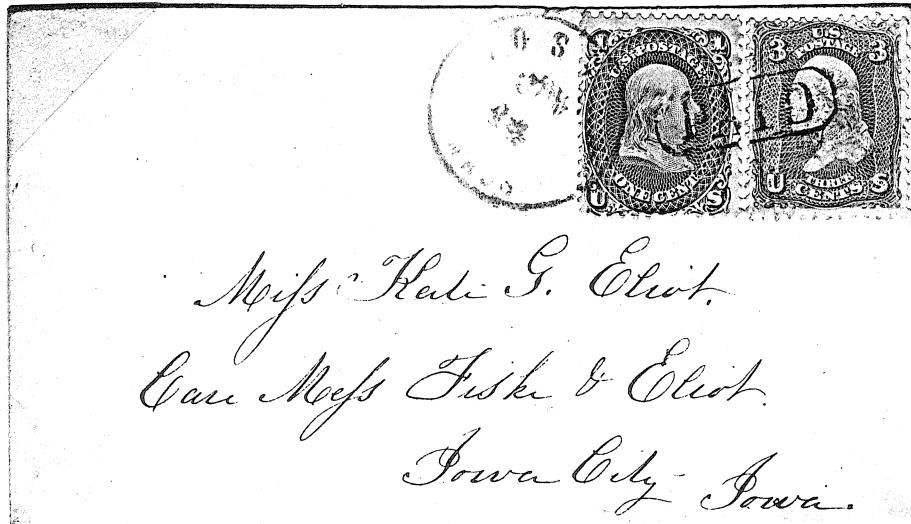 1 1
U.S. POSTAGE
ONE CENT
U S
3 3
US
POSTAGE
THREE
CENTS
U S
PAID
Miſs Kate G. Eliot.
Care Meſs Fiske & Eliot.
Iowa City Iowa.